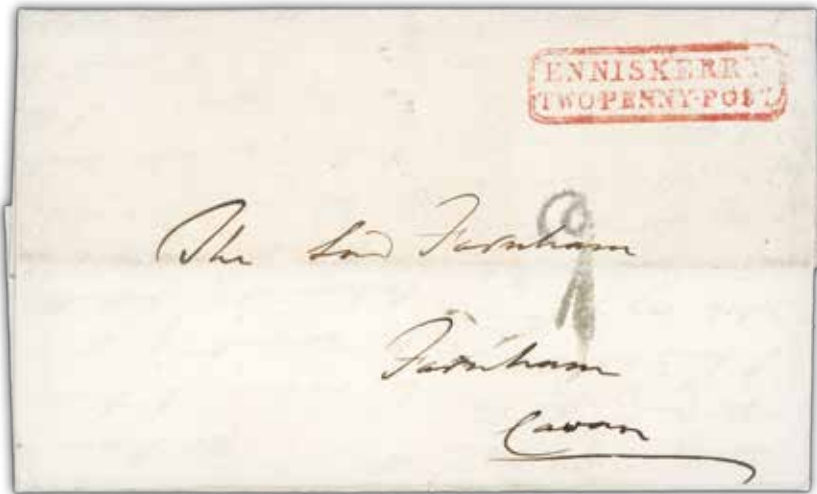 ENNISKERRY
TWOPENNY-POST
The Lord Farnham
9
Farnham
Cavan